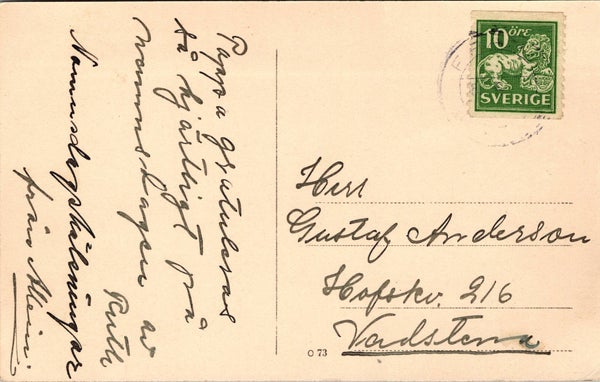 Pappa gratuleras
så hjärtligt på
namnsdagen av
Ruth
Namnsdagshälsningar
från Allein.
10 ÖRE
SVERIGE
Herr
Gustaf Anderson
Hofskv. 216
Vadstena
O 73